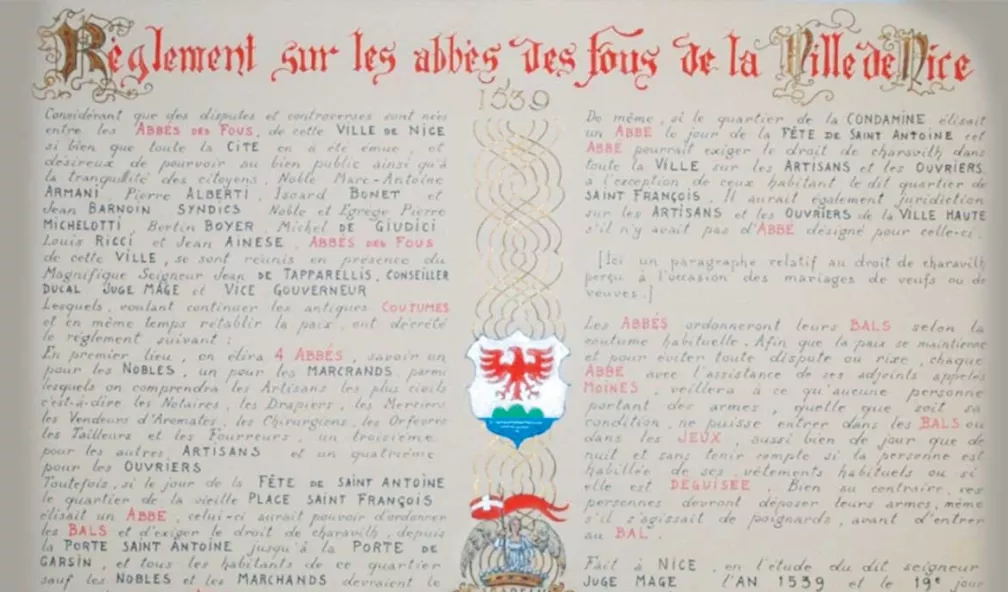 Règlement sur les abbès des fous de la Ville de Nice
1539
Considérant que des disputes et controverses sont nées
entre les ABBÉS DES FOUS, de cette VILLE DE NICE
si bien que toute la CITÉ en a été émue, et
désireux de pourvoir au bien public ainsi qu'à
la tranquillité des citoyens, Noble Marc-Antoine
ARMANI Pierre ALBERTI, Isoard BONET et
Jean BARNOIN SYNDICS Noble et Egrège Pierre
MICHELOTTI, Bertin BOYER, Michel DE GIUDICI
Louis RICCI et Jean AINESE, ABBÉS DES FOUS
de cette VILLE, se sont réunis en présence du
Magnifique Seigneur Jean DE TAPPARELLIS, CONSEILLER
DUCAL JUGE MAGE et VICE GOUVERNEUR
Lesquels, voulant continuer les antiques COUTUMES
et en même temps rétablir la paix, ont décrété
le règlement suivant :
En premier lieu, on élira 4 ABBÉS, savoir un
pour les NOBLES, un pour les MARCHANDS, parmi
lesquels on comprendra les Artisans les plus civils
c'est-à-dire les Notaires, les Drapiers, les Merciers
les Vendeurs d'Aromates, les Chirurgiens, les Orfèvres
les Tailleurs et les Fourreurs, un troisième
pour les autres ARTISANS et un quatrième
pour les OUVRIERS
Toutefois, si le jour de la FÊTE DE SAINT ANTOINE
le quartier de la vieille PLACE SAINT FRANÇOIS
élisait un ABBE, celui-ci aurait pouvoir d'ordonner
les BALS et d'exiger le droit de charavilh, depuis
la PORTE SAINT ANTOINE jusqu'à la PORTE DE
GARSIN, et tous les habitants de ce quartier
sauf les NOBLES et les MARCHANDS devraient le
De même, si le quartier de la CONDAMINE élisait
un ABBÉ le jour de la FÊTE DE SAINT ANTOINE cet
ABBÉ pourrait exiger le droit de charavilh dans
toute la VILLE sur les ARTISANS et les OUVRIERS
à l'exception de ceux habitant le dit quartier de
SAINT FRANÇOIS. Il aurait également juridiction
sur les ARTISANS et les OUVRIERS de la VILLE HAUTE
s'il n'y avait pas d'ABBÉ désigné pour celle-ci.
[Ici un paragraphe relatif au droit de charavilh
perçu à l'occasion des mariages de veufs ou de
veuves.]
Les ABBÉS ordonneront leurs BALS selon la
coutume habituelle. Afin que la paix se maintienne
et pour éviter toute dispute ou rixe, chaque
ABBÉ avec l'assistance de ses adjoints appelés
MOINES, veillera à ce qu'aucune personne
portant des armes, quelle que soit sa
condition, ne puisse entrer dans les BALS ou
dans les JEUX, aussi bien de jour que de
nuit et sans tenir compte si la personne est
habillée de ses vêtements habituels ou si
elle est DÉGUISÉE. Bien au contraire, ces
personnes devront déposer leurs armes, même
s'il s'agissait de poignards, avant d'entrer
au BAL.
Fait à NICE, en l'étude du dit seigneur
JUGE MAGE l'AN 1539 et le 19e jour